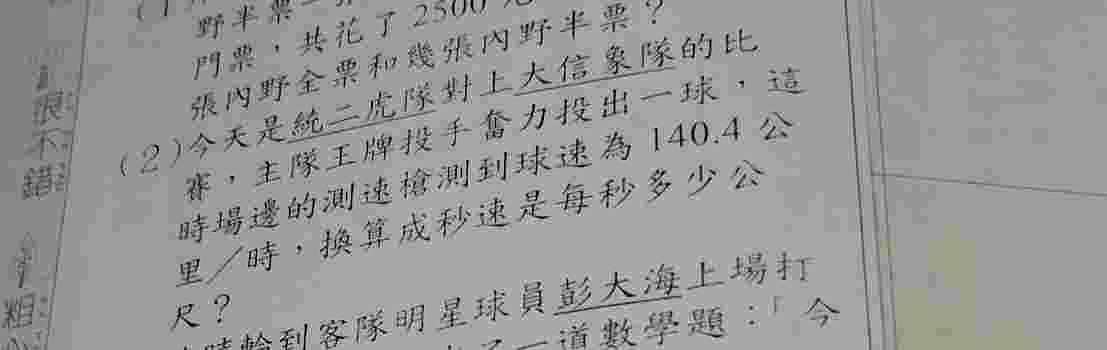 野半票
門票，共花了2500
張內野全票和幾張內野半票？
(2)今天是統二虎隊對上大信象隊的比
賽，主隊王牌投手奮力投出一球，這
時場邊的測速槍測到球速為140.4公
里／時，換算成秒速是每秒多少公
尺？
時輪到客隊明星球員彭大海上場打
一道數學題：「今
很
不
錯
粗